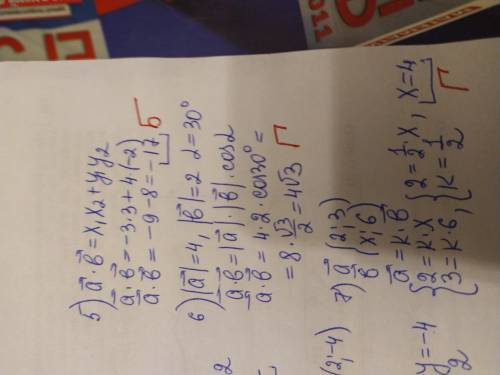 5) a⃗·b⃗ = x₁x₂ + y₁y₂
a⃗·b⃗ = -3·3 + 4·(-2)
a⃗·b⃗ = -9 - 8 = -17 Б
6) |a⃗| = 4, |b⃗| = 2 α = 30°
a⃗·b⃗ = |a⃗|·|b⃗|·cos α
a⃗·b⃗ = 4·2·cos 30° =
= 8·√3/2 = 4√3 Г
7) a⃗ (2; 3)
b⃗ (x; 6)
a⃗ = k·b⃗
{2 = k·x, {2 = 1/2·x, x = 4
{3 = k·6, {k = 1/2 Г
2
(2; -4)
y = -4
2
2011